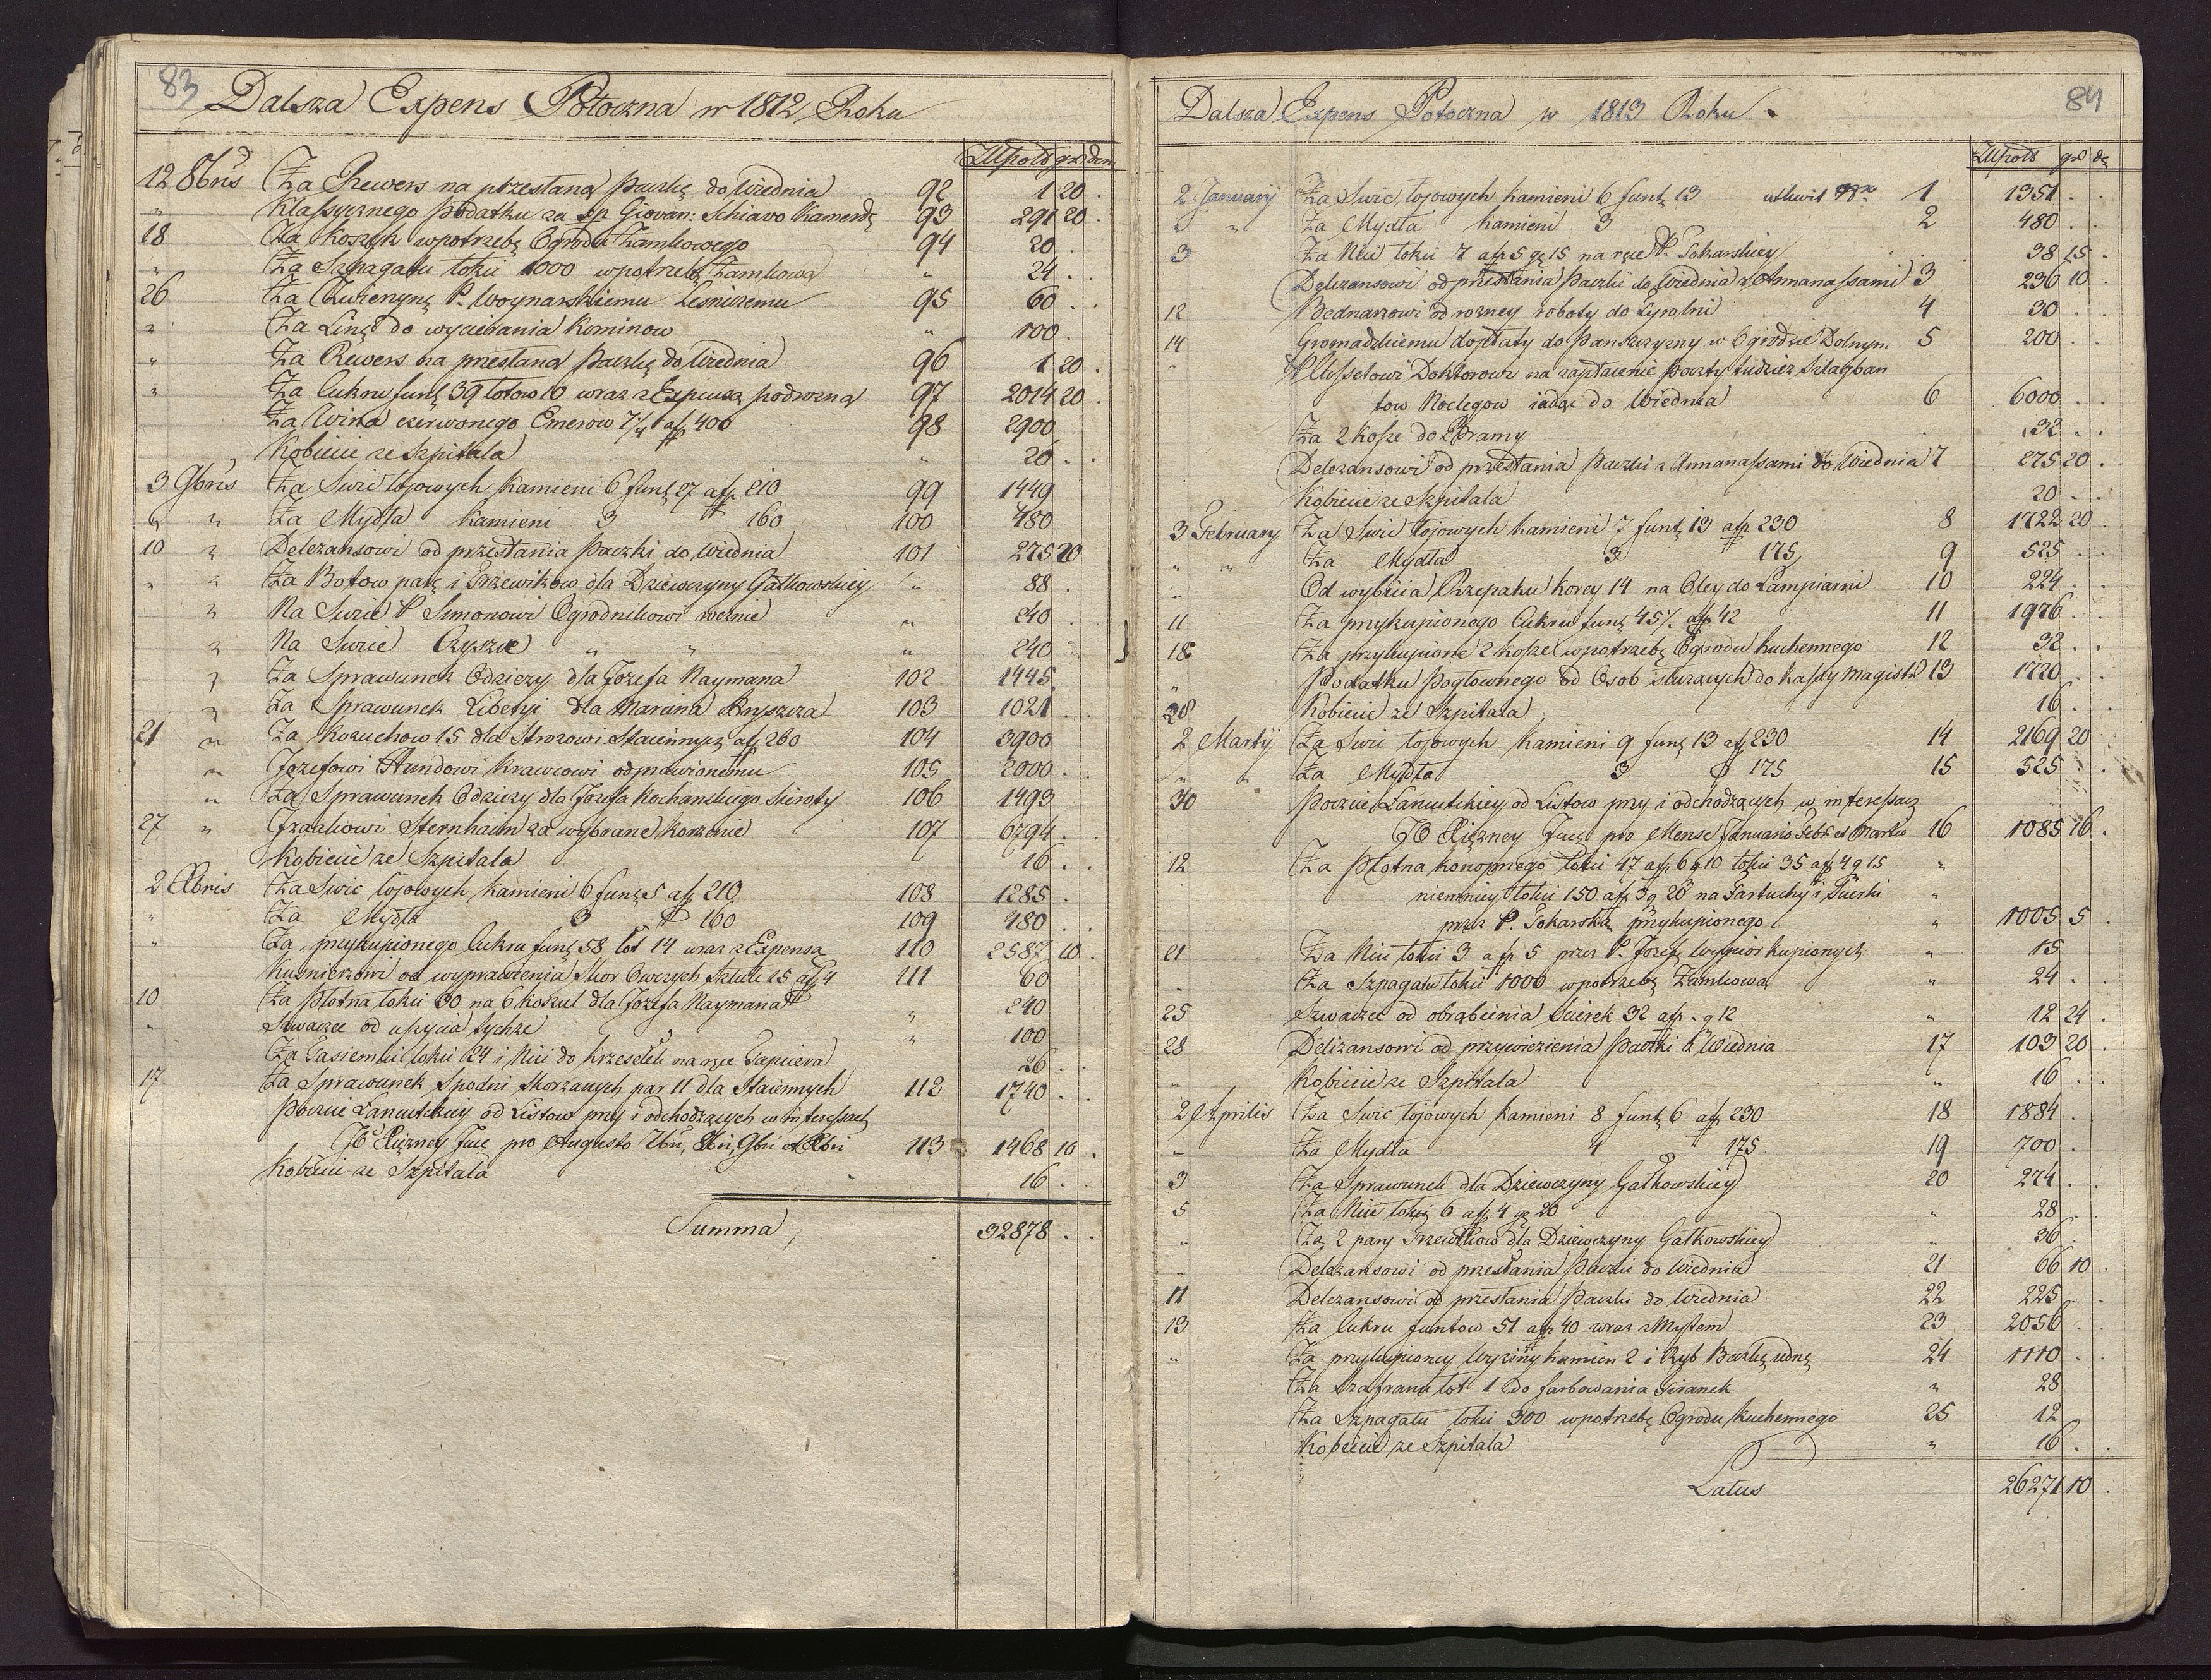 83
Dalsza Expens Potoczna w 1812 Roku
Złłpols gr den
12 8bris Za Rewers na przesłaną paczkę do Wiednia 92 1 20 .
" Klassycznego podatku za sp Giovan: Schiavo Kamerdę 93 291 20 .
18 Za Koszyk wpotrzebę Ogrodu Zamkowego 94 20 .
" Za Szpagatu łokci 1000 wpotrzebę Zamkową " 24 . .
26 Za Zwierzynę P. Woynarskiemu Leśniczemu 95 60 . .
" Za Linę do wycierania Kominow " 100 .
" Za Rewers na przesłaną paczkę do Wiednia 96 1 20 .
" Za Cukru funt 39 łotow 10 wraz z Expensą podrożną 97 2014 20 .
Za Wina czerwonego Emerow 7 1/4 a f 400 98 2900
Kobiecie ze Szpitala " 26 . .
3 9bris Za Swic łojowych Kamieni 6 funt 27 a f 210 99 1449
" " Za Mydła Kamieni 3 160 100 480
10 " Deleżansowi od przesłania paczki do Wiednia 101 275 20
" " Za Botow parę i Trzewikow dla Dziewczyny Gałkowskiey " 88 .
" Na Swice P Simonowi Ogrodnikowi rocznie " 240 .
" Na Swice Czyszce " " " 240
" Za Sprawunek Odzieży dla Jozefa Naymana 102 1445
" Za Sprawunek Liberyi dla Marcina Bryszcza 103 1021 . .
21 " Za Kożuchow 15 dla Strożow i Staiennych a f 260 104 3900
" Jozefowi Hundowi Krawcowi odprawionemu 105 2000 . .
" Za Sprawunek Odzieży dla Jozefa Kochanskiego Sieroty 106 1493
27 " Jzaakowi Sternhaim za wybrane Korzenie 107 6794 . .
Kobiecie ze Szpitala 16 . .
2 Xbris Za Swic łojowych Kamieni 6 funt 5 a f 210 108 1285 .
" Za Mydła 3 160 109 480 . .
" Za przykupionego Cukru funt 58 łot 14 wraz z Expensą 110 2587 10 .
Kusnierzowi od wyprawienia Skor Owczych Sztuk 15 a f 4 111 60
10 Za płotna łokci 30 na 6 koszul dla Jozefa Naymana " 240
" Szwaczce od uszycia tychże " 100
Za Tasiemki łokci 24 i Nici do Krzesełek na ręce Tapicera 26 . .
17 Za Sprawunek Spodni skorzanych par 11 dla Staiennych 112 1740 . .
Poczcie Łancutckiey od Listow przy i odchodzących w interessach
JO Xiężney Jmci pro Augusto 7bri, 8bri, 9bri et Xbri 113 1468 10 .
Kobiecie ze Szpitala 16 . .
Summa 32878 . .
84
Dalsza Expens Potoczna w 1813 Roku
Złłpols gr dę
2 January Za Swic łojowych Kamieni 6 funt 13 1 1351 . .
" " Za Mydła Kamieni 3 2 480 . .
3 Za Nici łokci 7 a f 5 g 15 na ręce P. Tokarskiey . 38 15 .
Deleżansowi od przesłania paczki do Wiednia z Annanassami 3 236 10 .
12 Bednarzowi od rożney roboty do Tyrolni 4 30 . .
14 Gromadzkiemu dopłaty do Panszczyzny w Ogrodzie Dolnym 5 200 . .
" Klossetowi Doktorowi na zapłacenie Poczty tudzież Szlagban
tow Noclegow iadąc do Wiednia 6 6000 . .
Za 2 Kosze do Bramy . 32 . .
Deleżansowi od przesłania paczki z Annanassami do Wiednia 7 275 20 .
Kobiecie ze Szpitala 20 . .
3 February Za Swic łojowych Kamieni 7 funt 13 a f 230 8 1722 20 .
" " Za Mydła 3 175 9 525 . .
" Od wybicia Rzepaku Korcy 14 na Oley do Lampiarni 10 224 . .
11 Za przykupionego Cukru funt 45 1/2 a f 42 11 1926 . .
18 Za przykupione 2 Kosze wpotrzebę Ogrodu Kuchennego 12 32 . .
" Podatku Pogłownego od Osob służących do Kassy Magistr 13 1720 . .
28 Kobiecie ze Szpitala 16 . .
2 Martij Za Swic łojowych Kamieni 9 funt 13 a f 230 14 2169 20 .
" " Za Mydła 3 175 15 525 . .
30 Poczcie Łancutckiey od Listow przy i odchodzących w interessach
JO Xiężney Jmci pro Mense Januario Febr et Martio 16 1085 16 .
12 Za Płotna konopnego łokci 47 a f 6 g 10 łokci 35 a f 4 g 15 "
niemniey łokci 150 a f 3 g 26 na Fartuchy i Scierki "
przez P. Tokarską przykupionego " 1005 5 .
21 Za Nici łokci 3 a f 5 przez P. Jozefę Wygnior kupionych " 15
" Za Szpagatu łokci 1000 wpotrzebę Zamkową " 24 . .
25 Szwaczce od obrąbienia Scierek 32 a f - g 12 " 12 24 .
28 Deliżansowi od przywiezienia Paczki z Wiednia 17 103 20 .
" Kobiecie ze Szpitala " 16 . .
2 Aprilis Za Swic łojowych Kamieni 8 funt 6 a f 230 18 1884 .
" Za Mydła 4 175 19 700 .
3 Za Sprawunek dla Dziewczyny Gałkowskiey 20 274 . .
5 Za Nici łokci 6 a f 4 g 20 " 28
" Za 2 pary Trzewikow dla Dziewczyny Gałkowskiey " 36 .
" Deleżansowi od przesłania Paczki do Wiednia 21 66 10 .
11 Deleżansowi od przesłania Paczki do Wiednia 22 225 . .
13 Za Cukru funtow 51 a f 40 wraz z Mytem 23 2056 . .
" Za przykupioney Wyziny Kamien 2 i Ryb Beczkę iednę 24 1110 . .
Za Szafranu łot 1 do farbowania Firanek " 28
Za Szpagatu łokci 300 wpotrzebę Ogrodu Kuchennego 25 12
Kobiecie ze Szpitala " 16 . .
Latus 26271 10 .